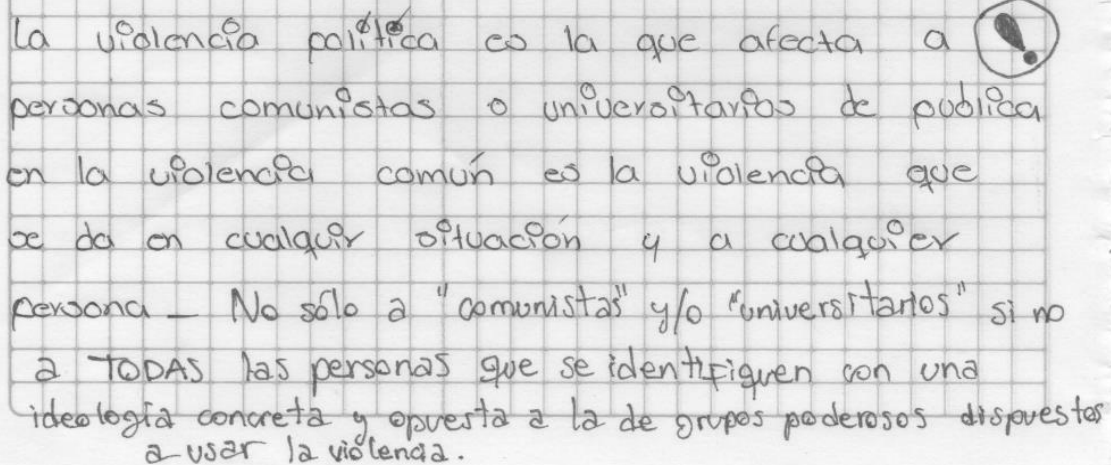 La violencia política es la que afecta a !
personas comunistas o universitarios de publica
en la violencia común es la violencia que
se da en cualquir situación y a cualquier
persona _ No sólo a "comunistas" y/o "universitarios" si no
a TODAS las personas que se identifiquen con una
ideología concreta y opuesta a la de grupos poderosos dispuestos
a usar la violencia.